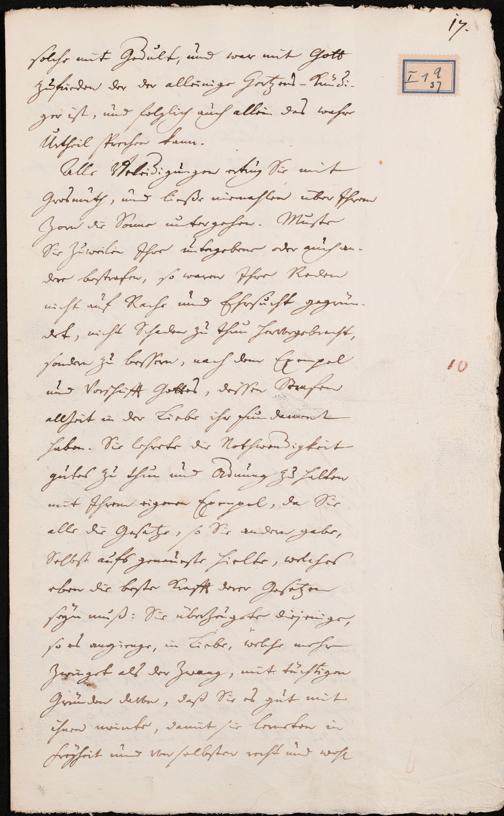 17.
I 1 a
37
solche mit Gedult, und war mit Gott
zufrieden der der alleinige Hertzens-Kündi-
ger ist, und folglich auch allein das wahre
Urtheil sprechen kann.
Alle Beleidigungen ertrug Sie mit
Grosmuth, und ließe niemahlen über Ihren
Zorn die Sonne untergehen. Muste
Sie zuweilen Ihre untergebene oder auch an-
dere bestrafen, so waren Ihre Reden
nicht auf Rache und Ehrsucht gegrün-
det, nicht Schaden zu thun hervorgebracht,
sondern zu bessern, nach dem Exempel
und Vorschrifft Gottes, dessen Strafen
allzeit in der Liebe ihr fundament
haben. Sie lehrete die Nothwendigkeit
gutes zu thun und Ordnung zu halten
mit Ihrem eigenen Exempel, da Sie
alle die Gesetze, so Sie andern gabe,
Selbst aufs genaueste hielte, welches
eben die beste Krafft derer Gesetzen
seyn muß: Sie überzeugete diejenige,
so es angienge, in Liebe, welche mehr
zwinget als der Zwang, mit tüchtigen
Gründen davon, daß Sie es gut mit
ihnen meinte, damit sie lerneten in
Freyheit und von selbsten recht und wohl
10